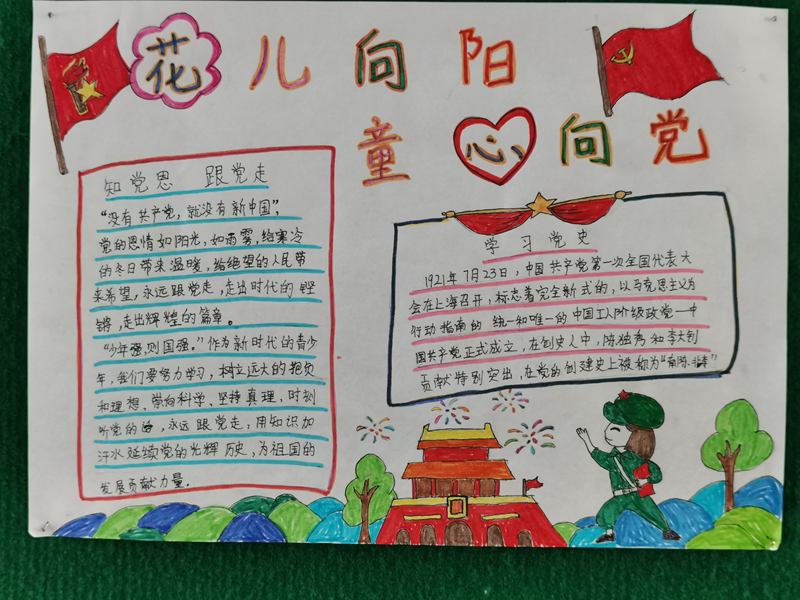 花儿向阳
童心向党
知党恩 跟党走
“没有共产党，就没有新中国”，
党的恩情如阳光，如雨雾，给寒冷
的冬日带来温暖，给绝望的人民带
来希望，永远跟党走，走出时代的铿
锵，走出辉煌的篇章。
“少年强，则国强。”作为新时代的青少
年，我们要努力学习，树立远大的抱负
和理想、崇尚科学、坚持真理，时刻
听党的，永远跟党走，用知识加
汗水延续党的光辉历史，为祖国的
发展贡献力量.
学习党史
1921年7月23日，中国共产党第一次全国代表大
会在上海召开，标志着完全新式的，以马克思主义为
行动指南的统一和唯一的中国工人阶级政党—中
国共产党正式成立，在创史人中，陈独秀和李大钊
贡献特别突出，在党的创建史上被称为“南陈.北李”